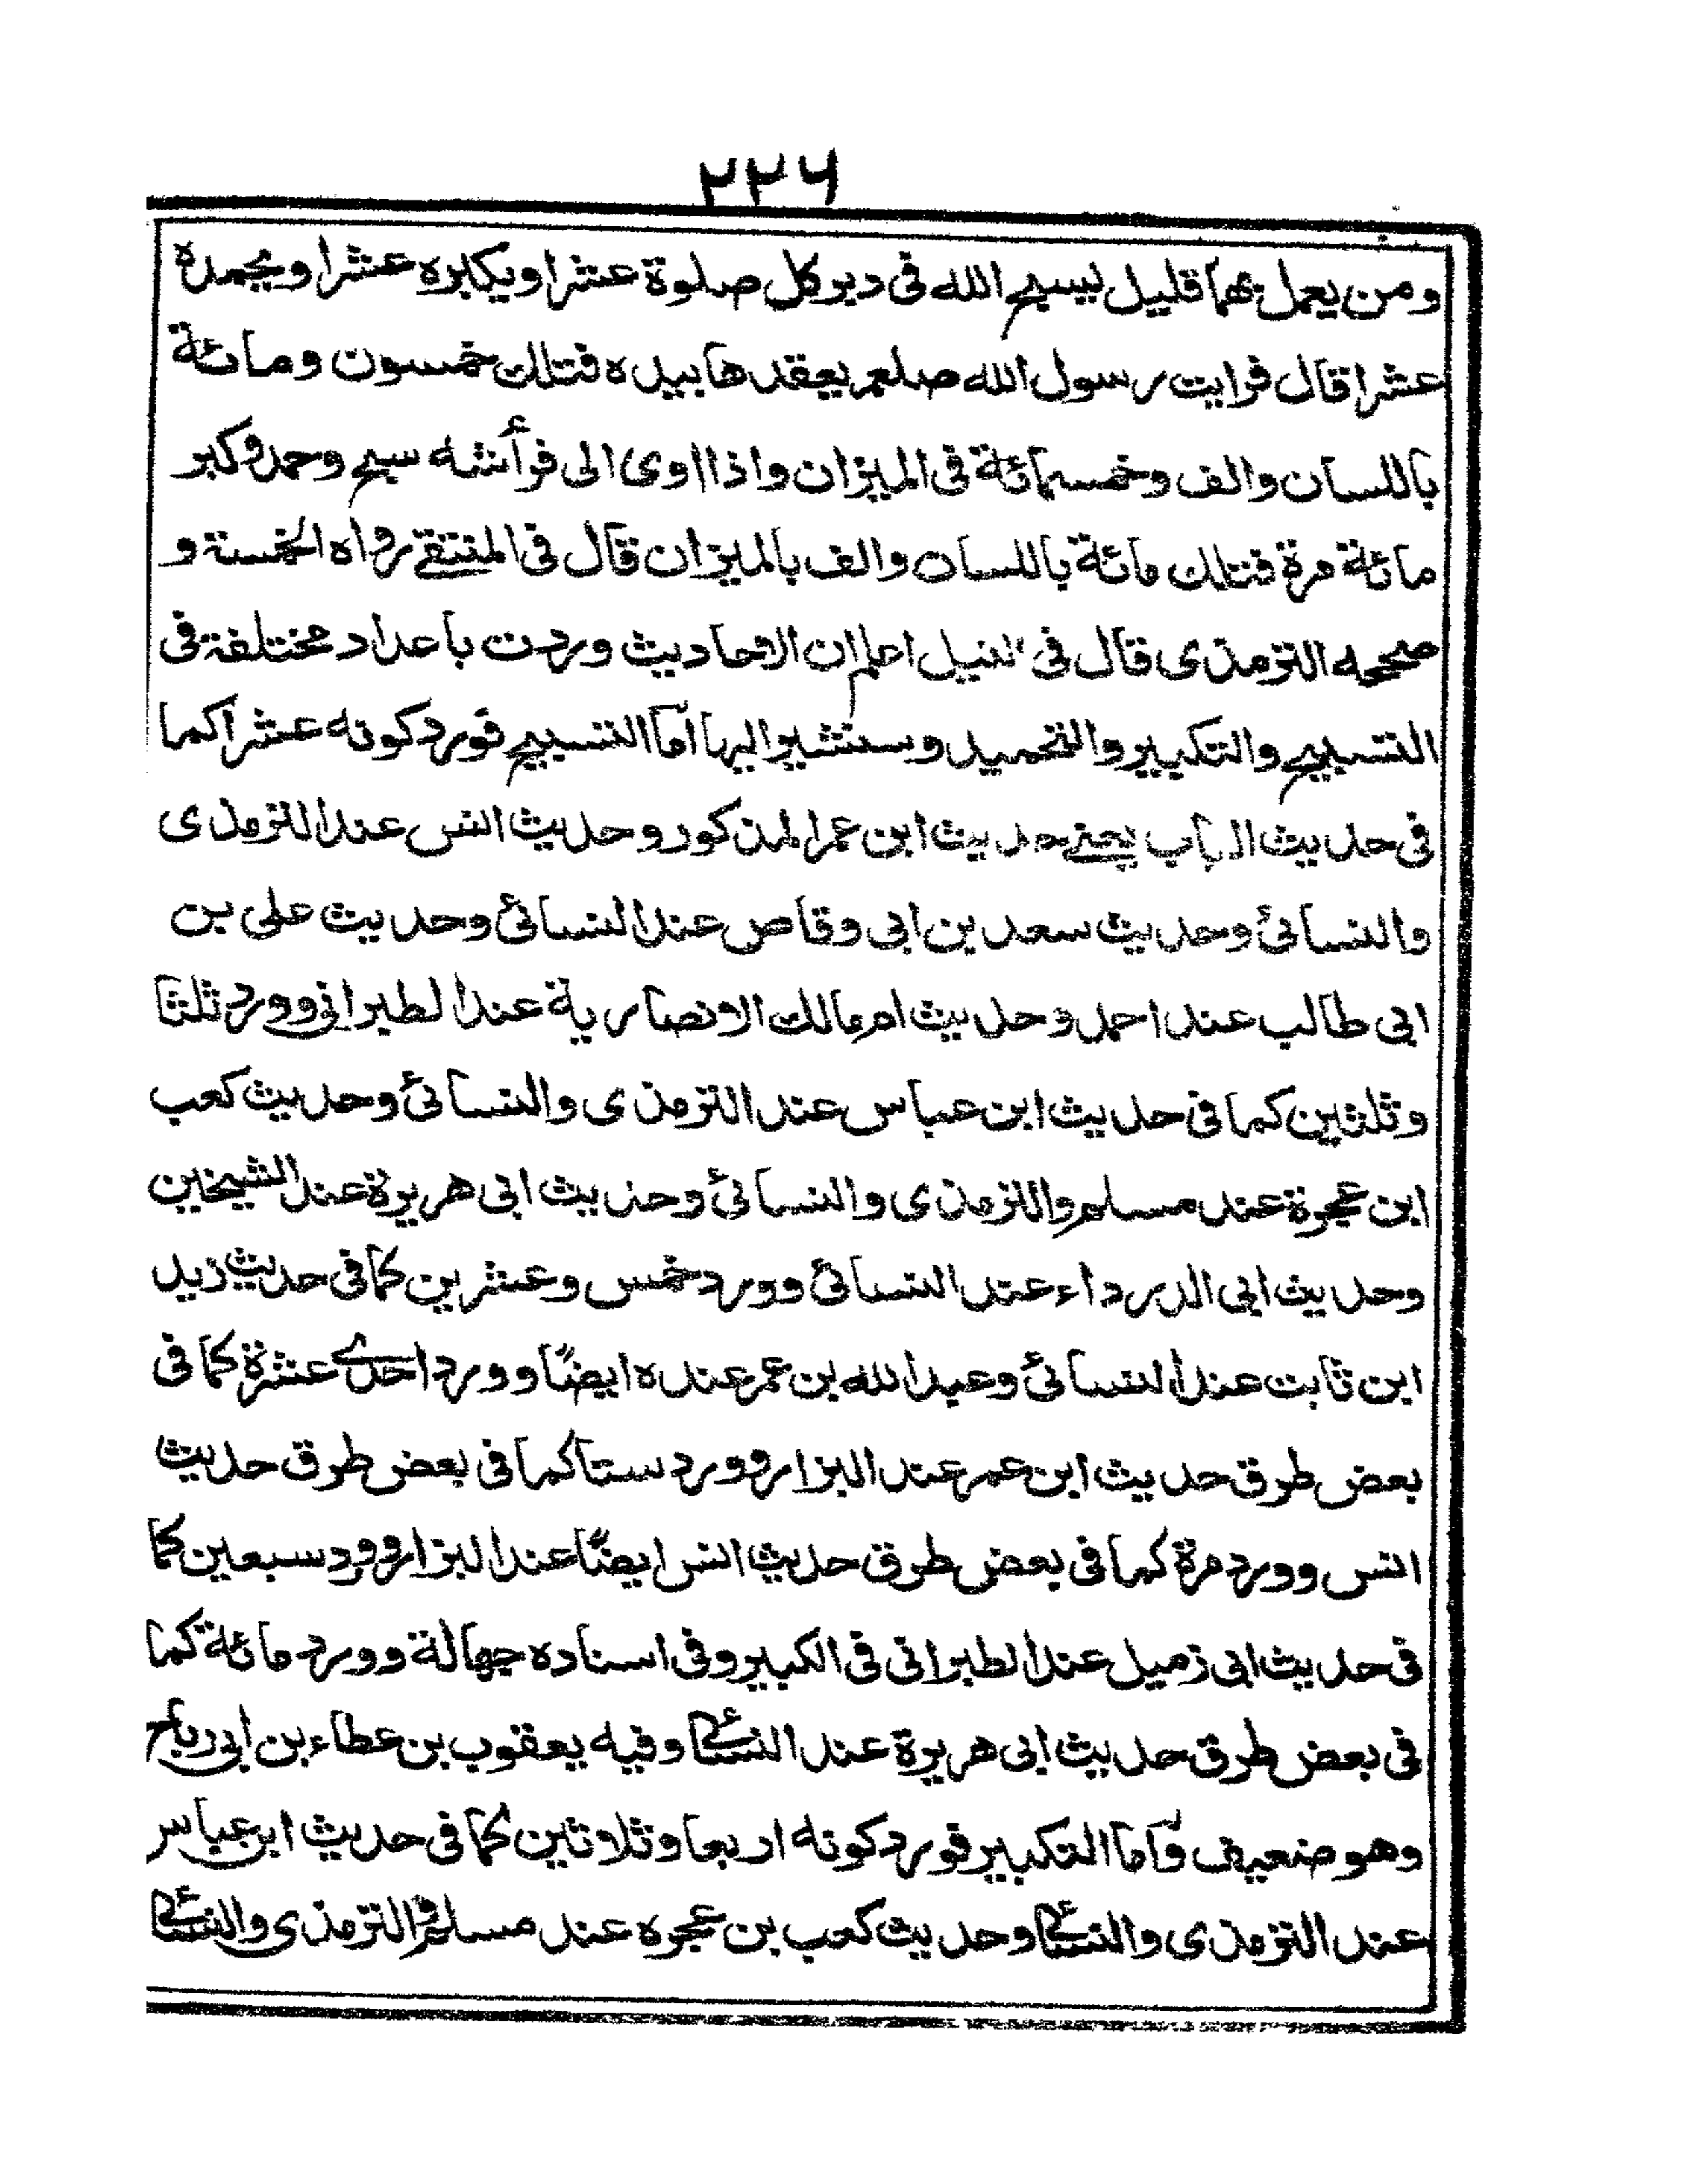 ٢٢٦
ومن يعمل بهما قليل يسبح الله فى دبر كل صلوة عشرا ويكبره عشرا ويحمده
عشرا قال فرايت رسول الله صلعم يعقدها بيده فتلك خمسون ومائة
باللسان والف وخمسمائة فى الميزان واذا اوى الى فرأشه سبح وحمد وكبر
مائة مرة فتلك مائة باللسان والف بالميزان قال فى المنتقے رواه الخمسة و
صححه الترمذى قال فى النيل اعلم ان الاحاديث وردت باعداد مختلفة فى
التسبيح والتكبير والتحميد وسنشير اليها أما التسبيح فورد كونه عشرا كما
فى حديث الباب يعنے حديث ابن عمر المذكور وحديث انس عند الترمذى
والنسائئ وحديث سعد بن ابى وقاص عند النسائئ وحديث على بن
ابى طالب عند احمد وحديث ام مالك الانصارية عند الطبرانى وورد ثلثا
وثلثين كما فى حديث ابن عباس عند الترمذى والنسائئ وحديث كعب
ابن عجرة عند مسلم والترمذى والنسائئ وحديث ابى هريرة عند الشيخين
وحديث ابى الدرداء عند النسائئ وورد خمس وعشرين كما فى حديث زيد
ابن ثابت عند النسائئ وعبد الله بن عمر عنده ايضًا وورد احدے عشرة كما فى
بعض طرق حديث ابن عمر عند البزار وورد ستا كما فى بعض طرق حديث
انس وورد مرة كما فى بعض طرق حديث انس ايضًا عند البزار وورد سبعين كما
فى حديث ابى زميل عند الطبرانى فى الكبير وفى اسناده جهالة وورد مائة كما
فى بعض طرق حديث ابى هريرة عند النسائے وفيه يعقوب بن عطاء بن ابى رباح
وهو ضعيف وأما التكبير فورد كونه اربعا وثلاثين كما فى حديث ابن عباس
عند الترمذى والنسائے وحديث كعب بن عجره عند مسلم والترمذى والنسائے